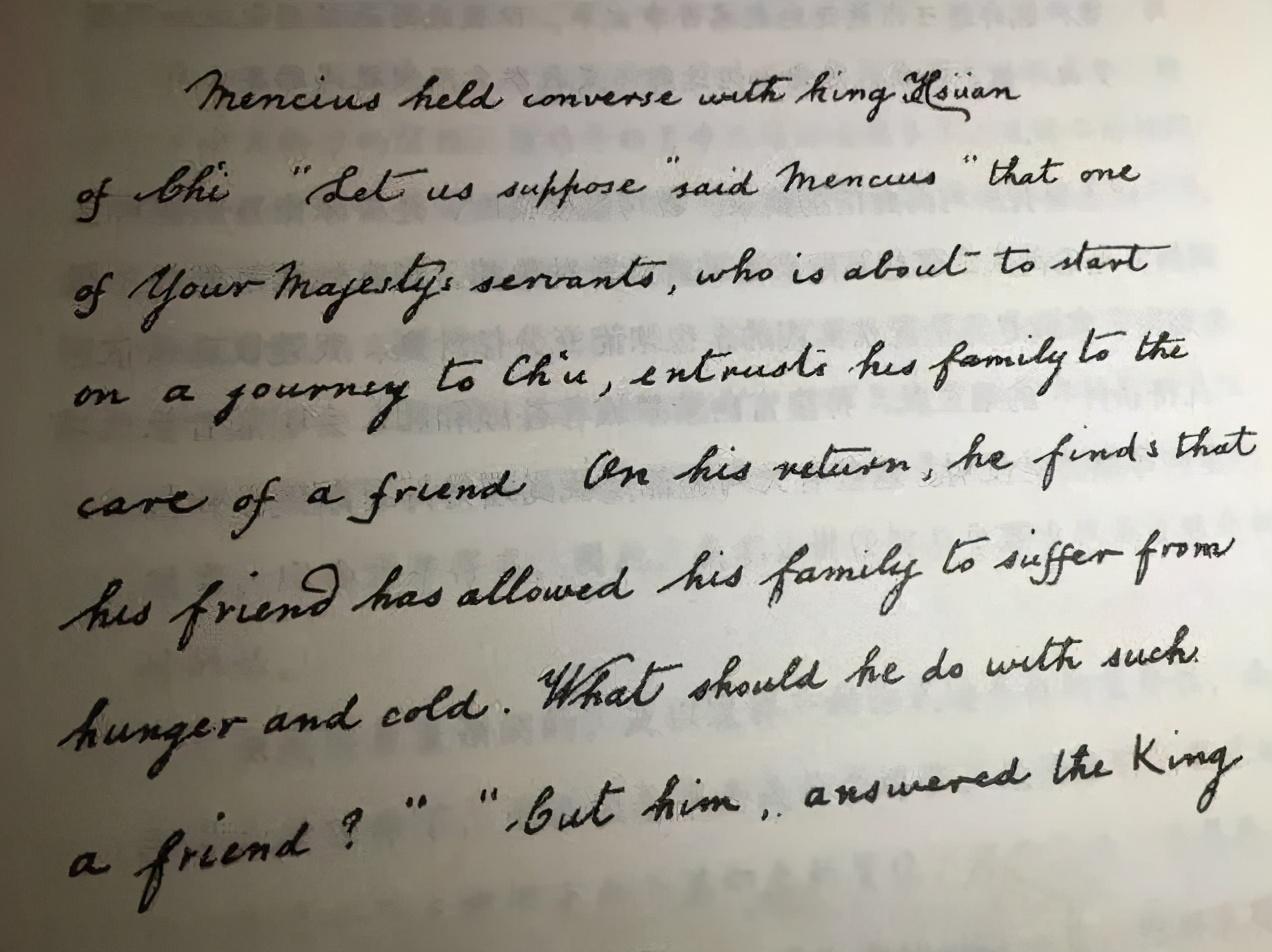 Mencius held converse with king Hsüan
of Ch'i "Let us suppose "said Mencius "that one
of Your Majesty's servants, who is about to start
on a journey to Ch'u, entrusts his family to the
care of a friend On his return, he finds that
his friend has allowed his family to suffer from
hunger and cold. What should he do with such
a friend?" "Cut him, answered the King